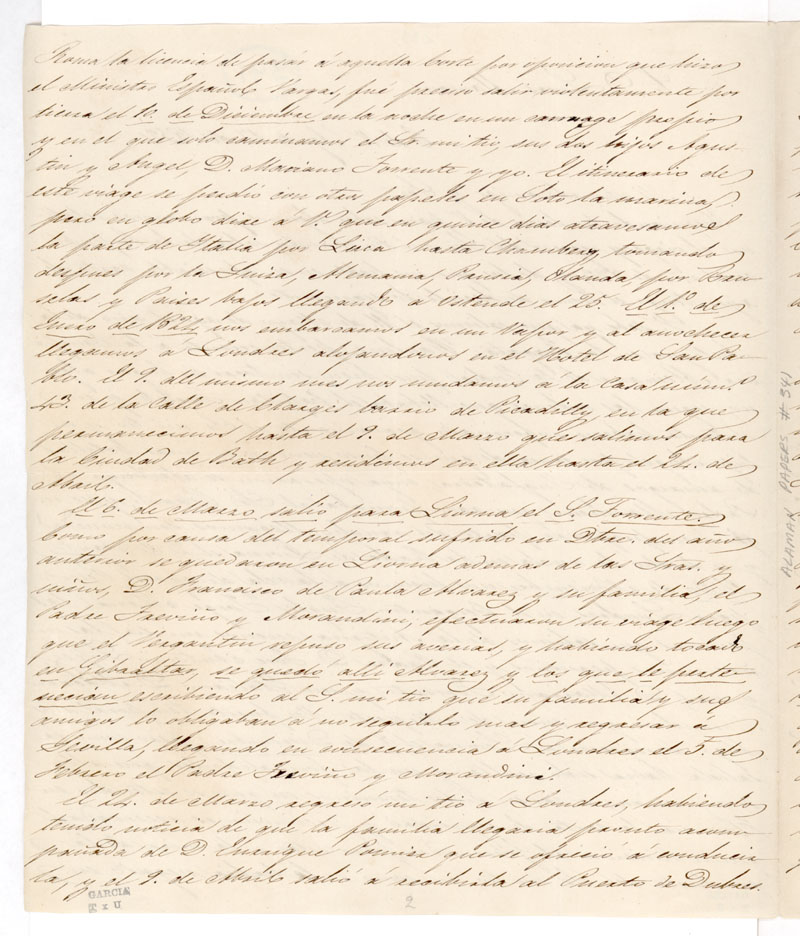 Roma la licencia de pasár á aquella Corte por oposicion que hizo
el Ministro Español Vargas, fué preciso salir violentamente por
tierra el 10. de Diciembre en la noche en un carruage propio
y en el que solo caminamos el Sr. mi tio, sus dos hijos Agus-
tin y Angel, D. Mariano Torrente y yo. El itinerario de
este viage se perdió con otros papeles en Soto la marina,
pero en globo diré á V. que en quince dias atravesamos
la parte de Italia por Luca hasta Chambery, tomando
despues por la Suiza, Alemania, Prusia, Olanda, por Bru-
selas, y Paises bajos llegando á Ostende el 25. El 1.º de
Enero de 1824 nos embarcamos en un Vapor y al anochecer
llegamos á Londres alojandonos en el Hotel de San Pa-
blo. El 9. del mismo mes nos mudamos á la Casa núm.º
43. de la Calle de Clarges barrio de Picadilly, en la que
permanecimos hasta el 9. de Marzo que salimos para
la Ciudad de Bath y residimos en ella hasta el 24. de
Abril.
El 6. de Marzo salió para Liorna el S. Torrente.
Como por causa del temporal sufrido en Dbre. del año
anterior se quedaron en Liorna ademas de las Sras. y
niños, D. Francisco de Paula Alvarez y su familia, el
Padre Treviño y Morandini, efectuaron su viage luego
que el Vergantin repuso sus averias, y habiendo tocado
en Gibraltar, se quedó alli Alvarez y los que le perte-
necian escribiendo al S. mi tio que su familia y sus
amigos lo obligaban á no seguirlo mas y regresar á
Sevilla, llegando en consecuencia a Londres el 5. de
Febrero el Padre Treviño y Morandini.
El 24. de Marzo regresó mi tio á Londres, habiendo
tenido noticia de que la familia llegaria pronto acom-
pañada de D. Enrique que se ofreció á conducir-
la, y el 9. de Abril salió á recibirla al Puerto de Dubres.
GARCIA
T x U
2
ALAMAN PAPERS # 341